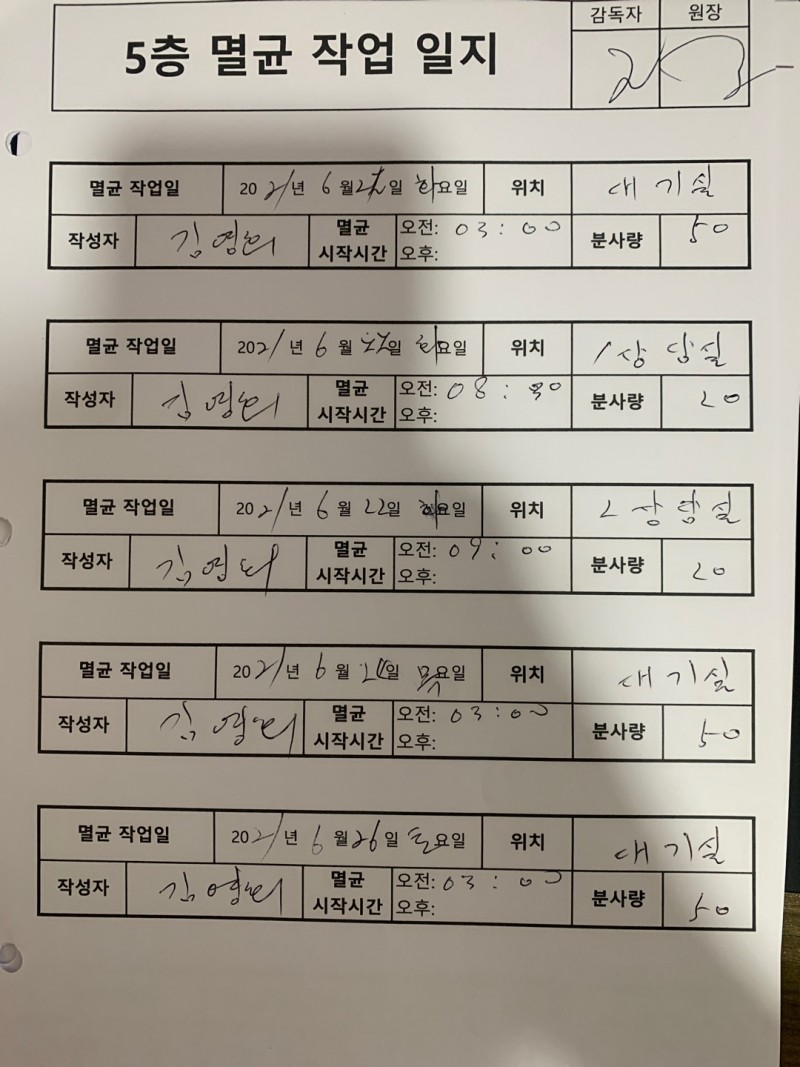 감독자 원장
5층 멸균 작업 일지
멸균 작업일 2021년 6월 22일 화요일 위치 대기실
작성자 김영희 멸균 시작시간 오전: 03:00 분사량 50
오후:
멸균 작업일 2021년 6월 22일 화요일 위치 1상담실
작성자 김영희 멸균 시작시간 오전: 08:30 분사량 20
오후:
멸균 작업일 2021년 6월 22일 화요일 위치 2상담실
작성자 김영희 멸균 시작시간 오전: 09:00 분사량 20
오후:
멸균 작업일 2021년 6월 일 목요일 위치 대기실
작성자 김영희 멸균 시작시간 오전: 03:00 분사량 50
오후:
멸균 작업일 2021년 6월 26일 토요일 위치 대기실
작성자 김영희 멸균 시작시간 오전: 03:00 분사량 50
오후: